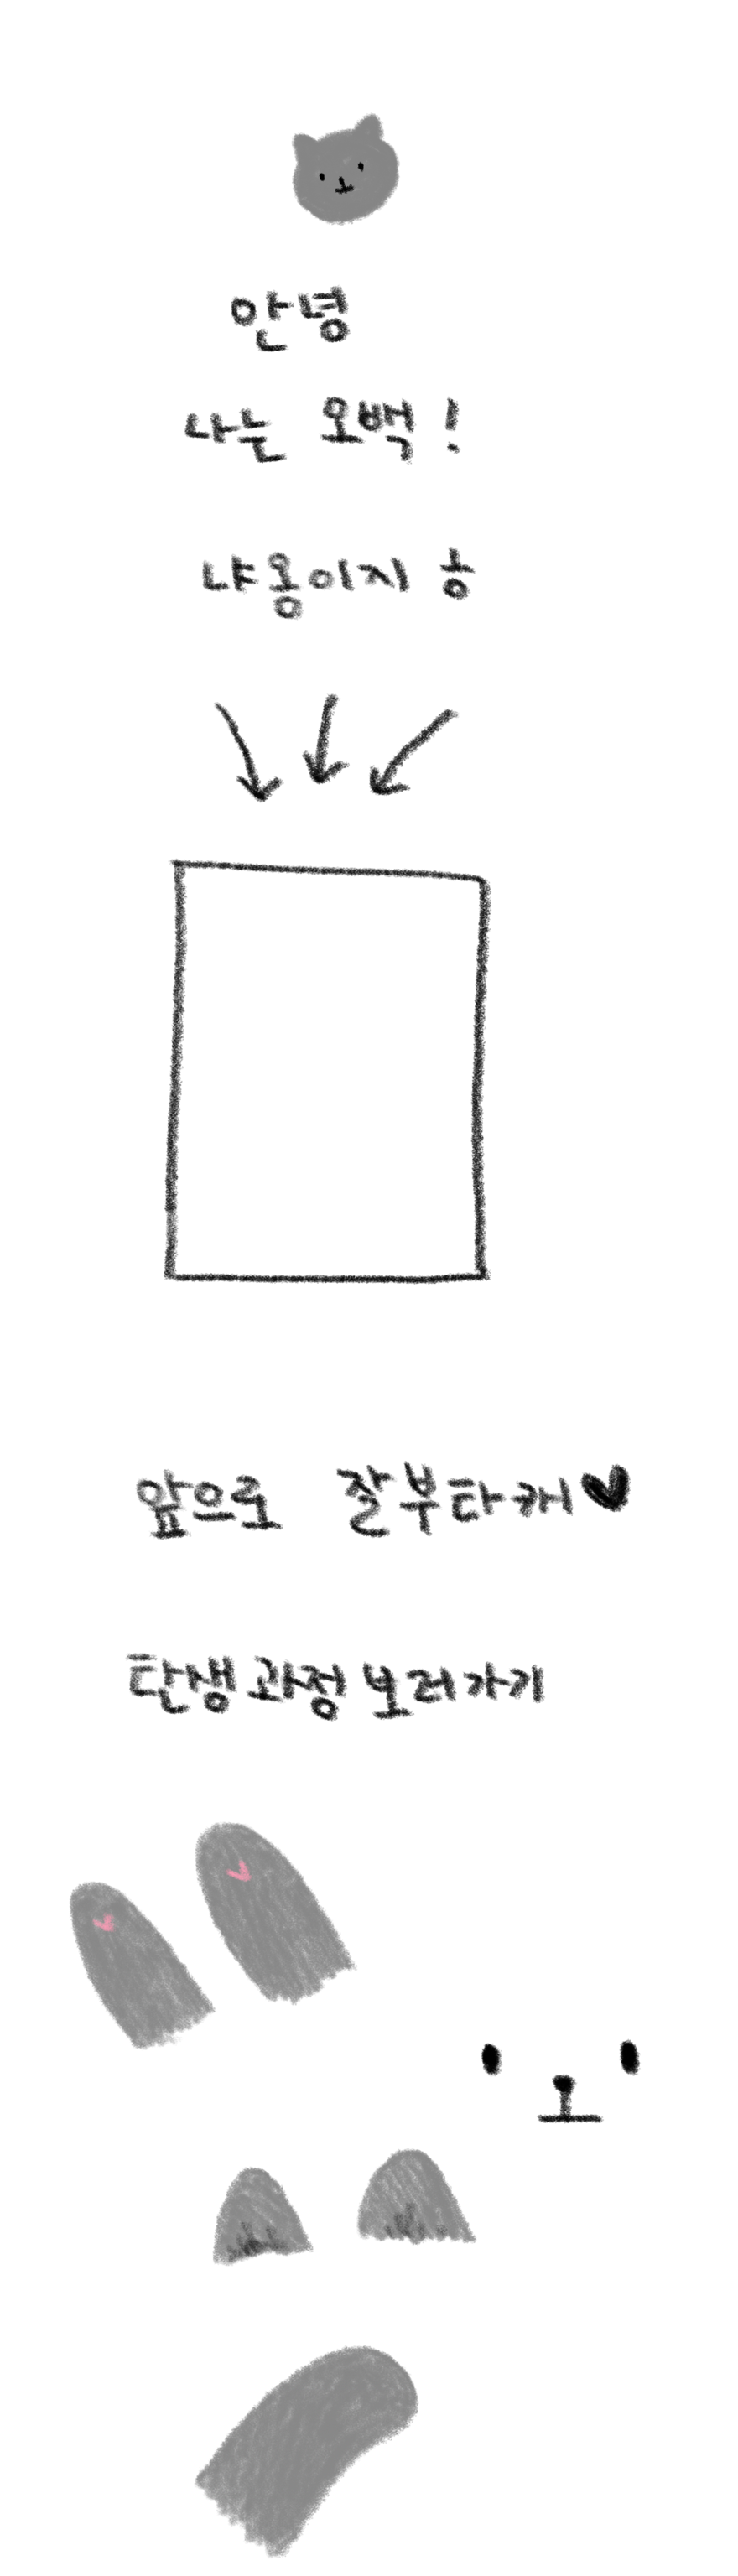 안녕
나는 오백!
냐옹이지 ㅎ
앞으로 잘부타캐♥
탄생 과정 보러가기